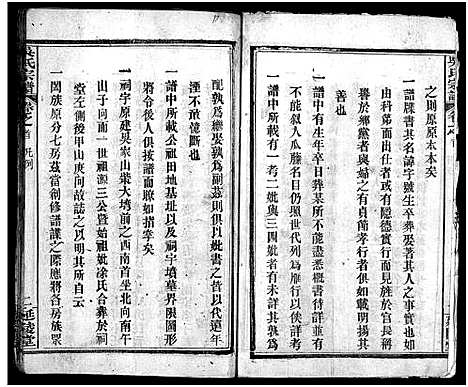 之則原原本本矣
一譜牒書其名諱字號生卒葬娶著其人之事實也如
子弟第而出仕或者有隱德實行而施於官長幃
賢於鄉黨者與媍之有貞節孝行者俱如載明揚其
善也
一譜中所註有生年卒日葬某所不能盡悉概書待詳註
不能敘人瓜藤名目仍照世代列爲后嗣以俟詳考
譜中所載有一考二妣與三四妣者有未詳其孰爲
元配孰爲繼娶孰爲副惹則俱以妣書之皆以代遠年
湮不敢僥斷也
一譜中所載公祖田地基址以及祠宇墳墓界限圖形
將令後人俱按譜而瞭如指掌矣
一祠宇原建吳家山柴大塆前之西南首坐北向南午
山子向而一世祖源三公曁始妣徐氏合葬於祠
堂左側甲山庚向故誌之以明其所自云
一闔族原分七房茲當創修譜牒之際應將各房族眾
吳氏宗譜
卷之首
凡例
延陵堂